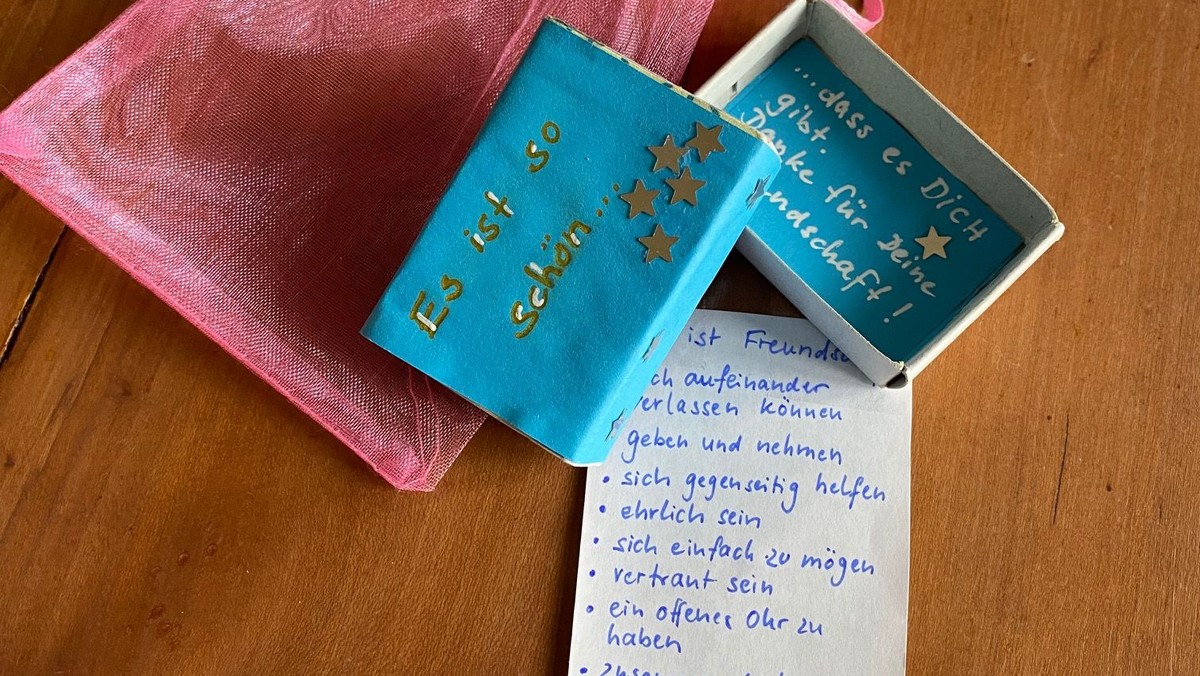 Es ist so
schön...
...dass es Dich
gibt.
Danke für Deine
ndschaft!
ist Freunds
ch aufeinander
erlassen können
geben und nehmen
• sich gegenseitig helfen
• ehrlich sein
• sich einfach zu mögen
• vertraut sein
• ein offenes Ohr zu
haben